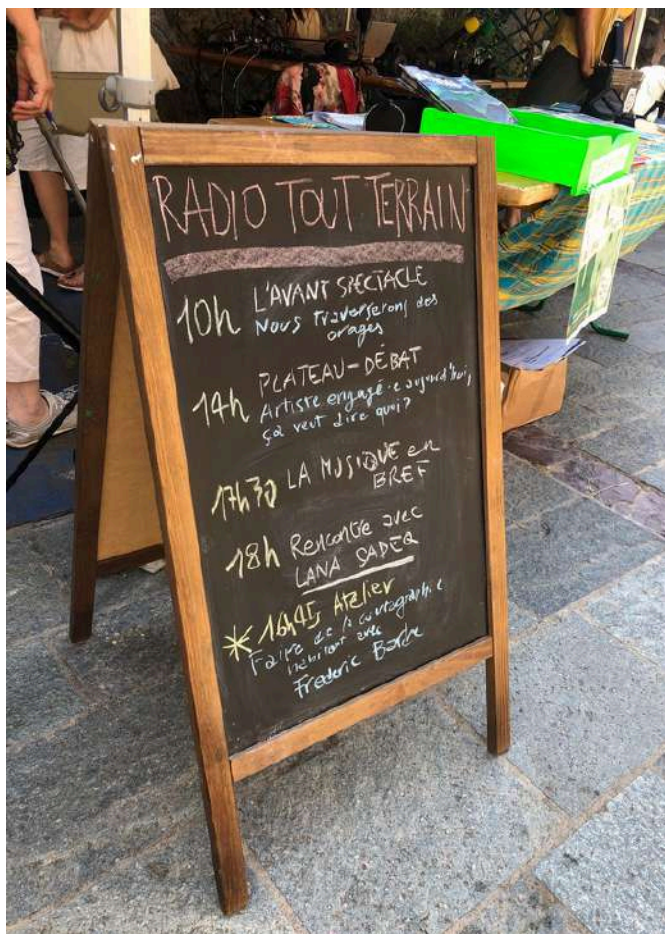 RADIO TOUT TERRAIN
10h L'AVANT SPECTACLE
Nous traverserons des
orages
14h PLATEAU-DÉBAT
Artiste engagé·e aujourd'hui,
ça veut dire quoi?
17h30 LA MUSIQUE en
BREF
18h Rencontre avec
LANA SADEQ
* 16h45 Atelier
Faire de la cartographie
avec
Frédéric Barbe